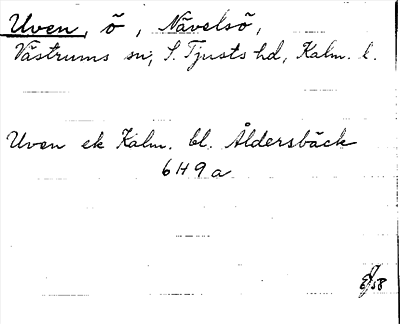 Uven, ö, Nävelsö,
Västrums sn, S. Tjusts hd, Kalm. l.
Uven ek Kalm. bl. Åldersbäck
6H9a
/58